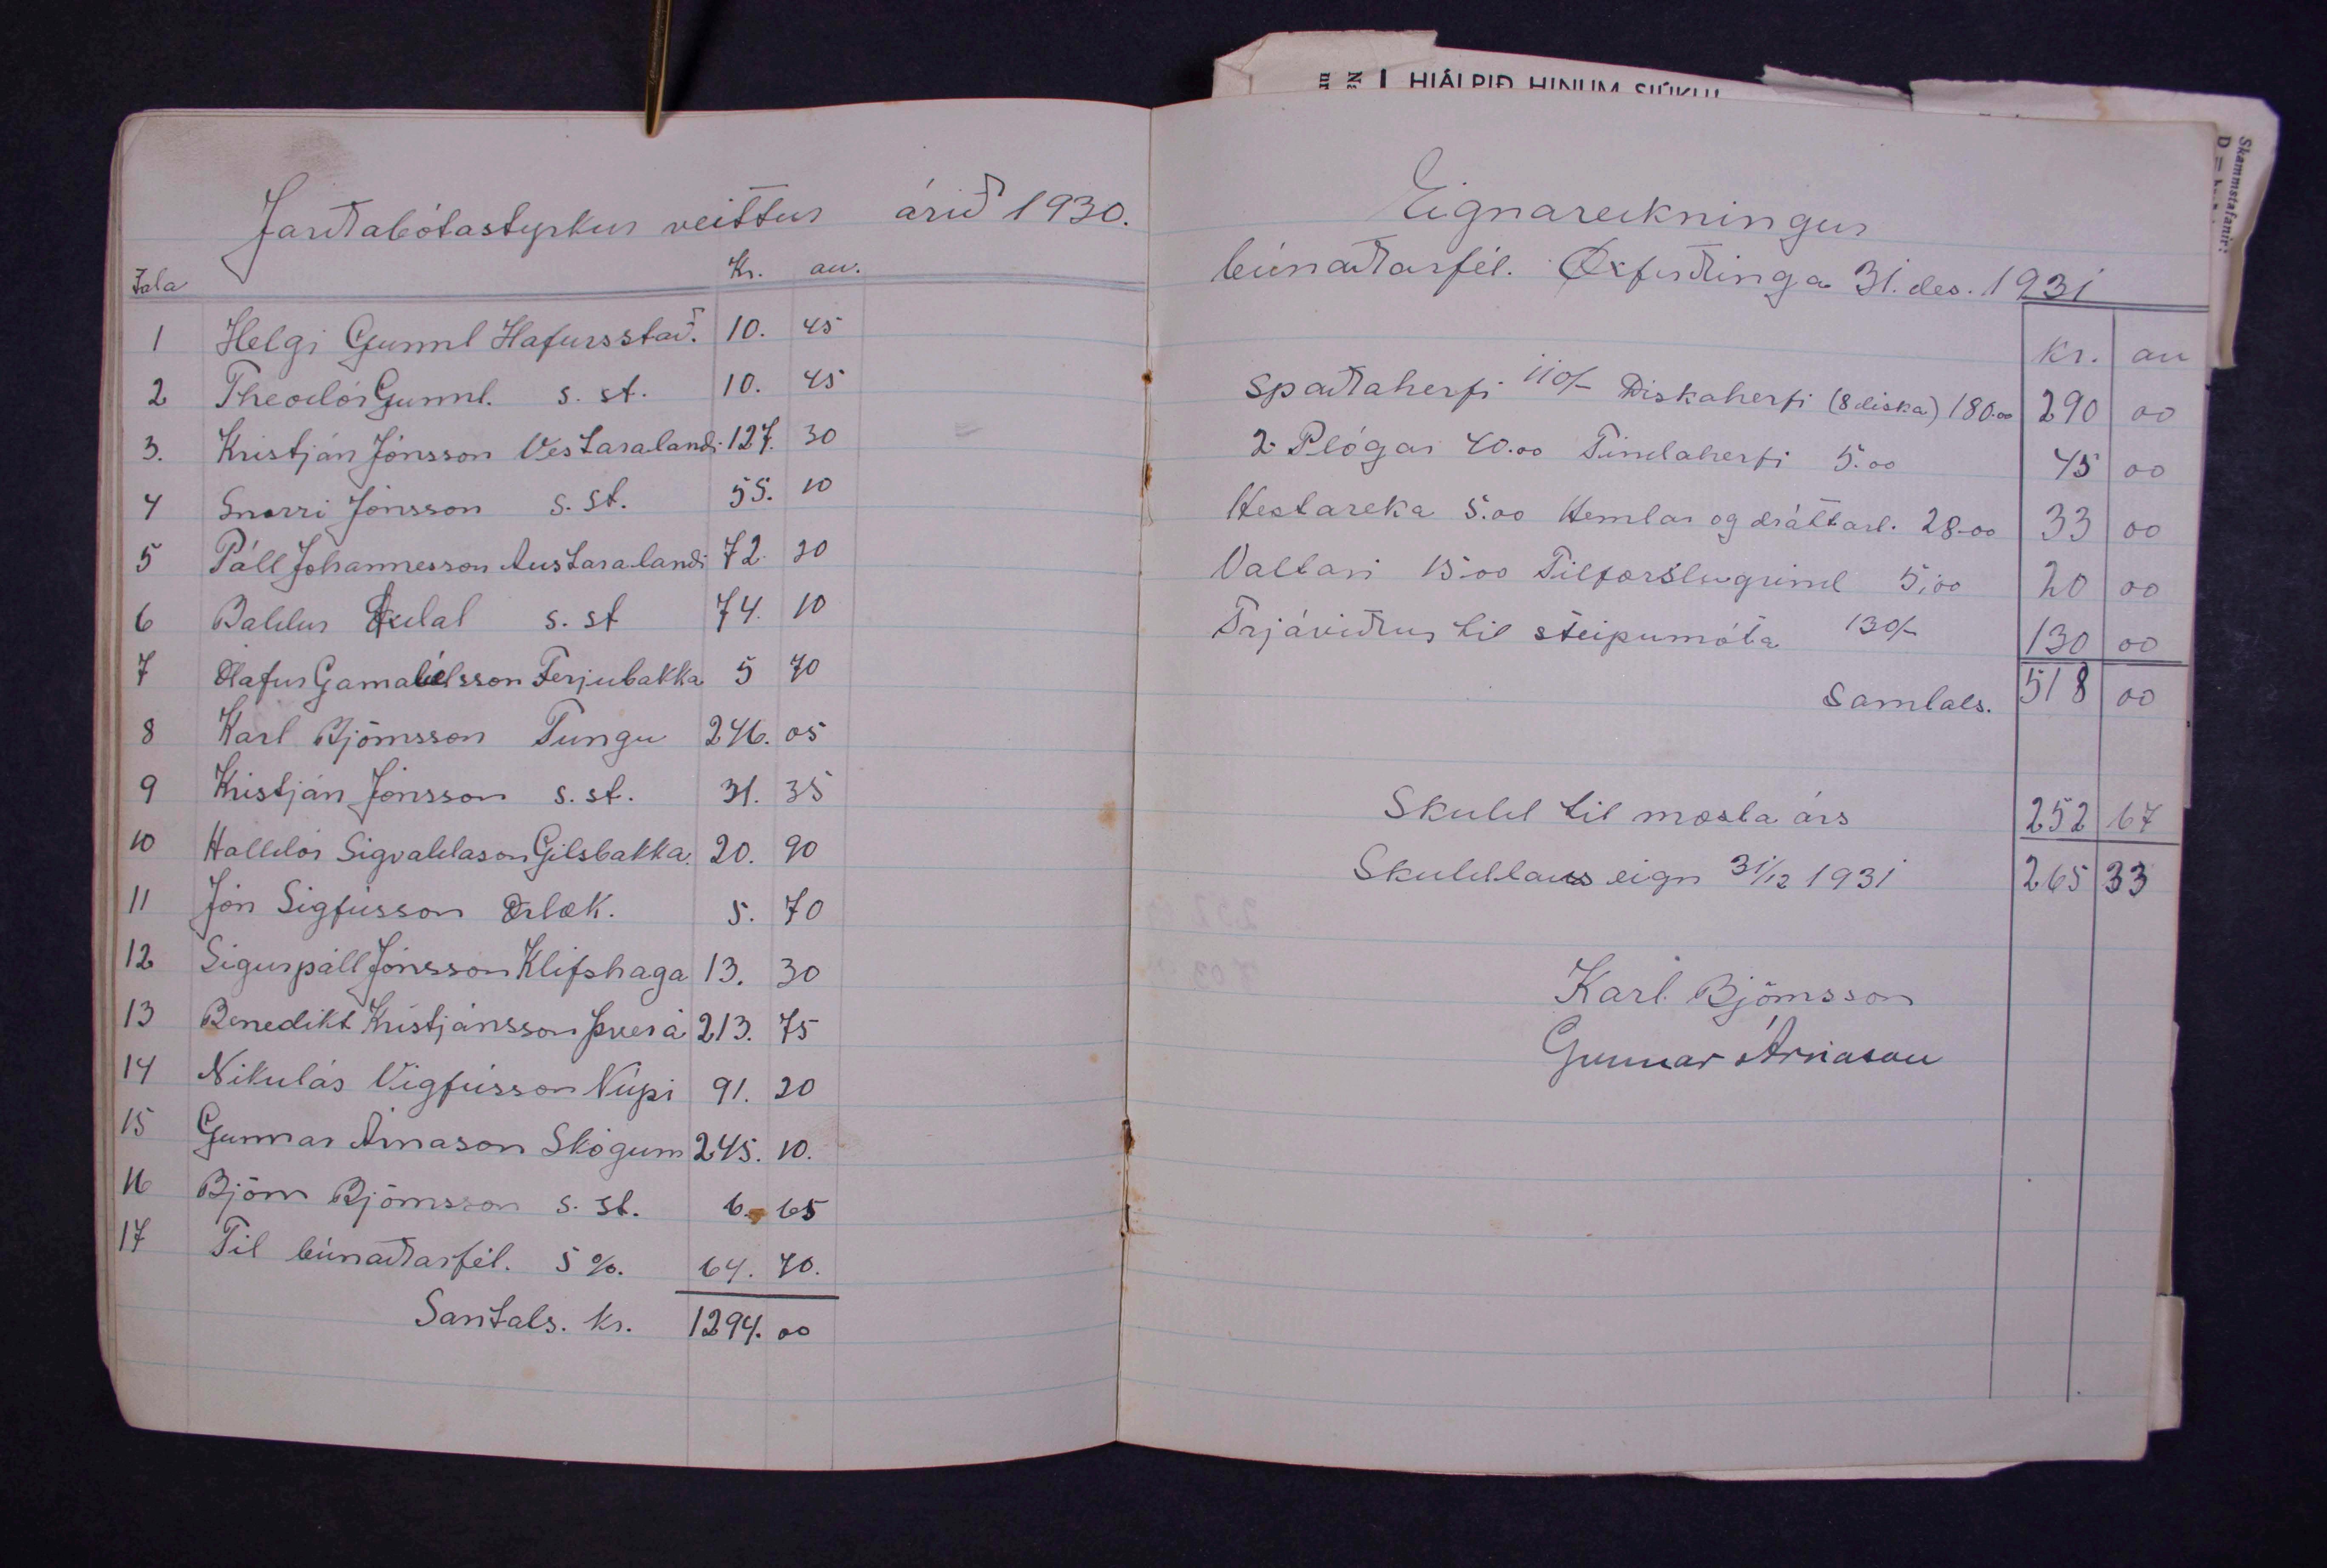 Jarðabótastyrkur veittur árið 1930.
Tala Kr. au.
1 Helgi Gunnl Hafursstað. 10. 45
2 Theodór Gunnl. s. st. 10. 45
3. Kristján Jónsson Vestaralandi 127. 30
4 Snorri Jónsson s. st. 55. 10
5 Páll Jóhannesson Austaralandi 72. 20
6 Baldur s. st 74. 10
7 Ólafur Gamalíelsson Ferjubakka 5 70
8 Karl Björnsson Tungu 246. 05
9 Kristján Jónsson s. st. 31. 35
10 Halldór Sigvaldason Gilsbakka. 20. 90
11 Jón Sigfússon Ærlæk. 5. 70
12 Sigurpáll Jónsson Klifshaga 13. 30
13 Benedikt Kristjánsson Þverá 213. 75
14 Nikulás Vigfússon Núpi 91. 20
15 Gunnar Árnason Skógum 245. 10.
16 Björn Björnsson s. st. 6. 65
17 Til búnaðarfél. 5 %. 64. 70.
Samtals. kr. 1294. 00
HJÁLPIÐ HINUM SJÚKU!
Skammstafanir:
Eignareikningur
búnaðarfél. Öxfirðinga 31. des. 1931
Kr. au
Spaðaherfi 110/- Diskaherfi (8 diska) 180.00 290 00
2 Plógar 40.00 Tindaherfi 5.00 45 00
Hestareka 5.00 Hemlar og dráttarl. 28.00 33 00
Valtari 15.00 Tilfærslugrind 5.00 20 00
Trjáviður til steipumóta 130/- 130 00
Samtals. 518 00
Skuld til næsta árs 252 67
Skuldlaus eign 31/12 1931 265 33
Karl Björnsson
Gunnar Árnason